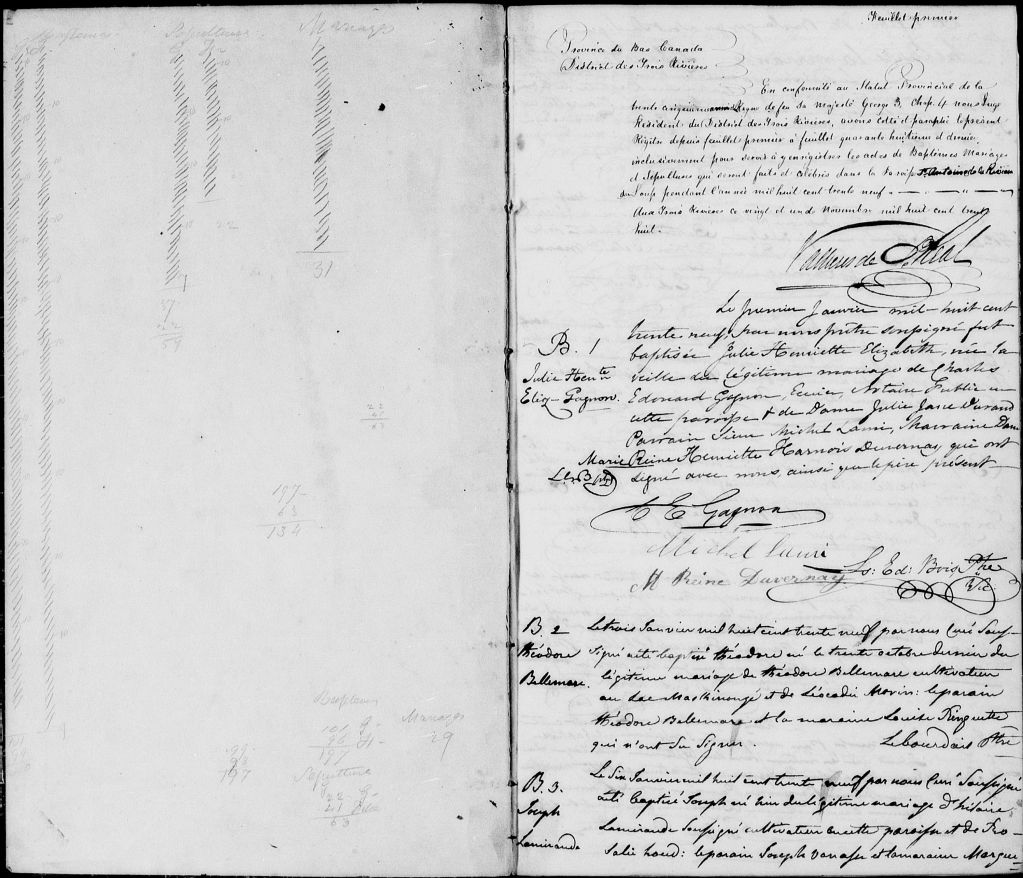 Baptemes
Sepultures
Mariage
G.
10
22
31
37
22
59
22
41
63
197
63
134
Baptemes
101 G.
96 F.
197
Mariages
29
99
98
197
Sepulture
22 G.
41 F.
63
Feuillet premier
Province du Bas Canada
District des Trois Rivières
En conformité au Statut Provincial de la
trente cinquieme année du Règne de feu Sa Majesté George 3. Chap. 4 nous Juge
Résident du District des Trois Rivières, avons coté et paraphé le présent
Régître depuis feuillet premier à feuillet quarante huitième et dernier
inclusivement pour servir à y enrégistrer les actes de Baptêmes Mariages
et Sépultures qui seront faits et célébrés dans la Paroisse St. Antoine de la Rivière
du Loup pendant l'année mil huit cent trente neuf
Aux Trois Rivières ce vingt et un de Novembre mil huit cent trente
huit.
Vallières de St. Réal
B. 1
Julie Hentte
Eliz. Gagnon.
Le premier Janvier mil-huit cent
trente neuf, par nous prêtre soussigné fut
baptisée Julie Henriette Elizabeth, née la
veille du légitime mariage de Charles
Edouard Gagnon, Ecuier, Notaire Public en
cette paroisse & de Dame Julie Durand
Parrain Sieur Michel Lami, Marraine Dame
Marie Reine Henriette Harnois Duvernay, qui ont
signé avec nous, ainsi que le père présent
C E Gagnon
Michel Lami
M Reine Duvernay
Ls: Ed: Bois, Ptre
Vic.
B. 2
Théodore
Bellemare.
Le trois Janvier mil huit cent trente neuf par nous Curé Sous-
signé a été baptisé Théodore né le trente octobre dernier du
légitime mariage de Théodore Bellemare cultivateur
au Lac Maskinongé et de Léocadie Morin: le parain
Théodore Bellemare et la maraine Louise Pinguette
qui n'ont su signer.
Lebourdais Ptre
B. 3.
Joseph
Lamirande
Le Six Janvier mil huit cent trente neuf par nous Curé Soussigné
a été baptisé Joseph né hier du légitime mariage d'hilaire
Lamirande Soussigné cultivateur en cette paroisse et de Ro-
salie houd: le parain Joseph Vanasse et la maraine Margue-